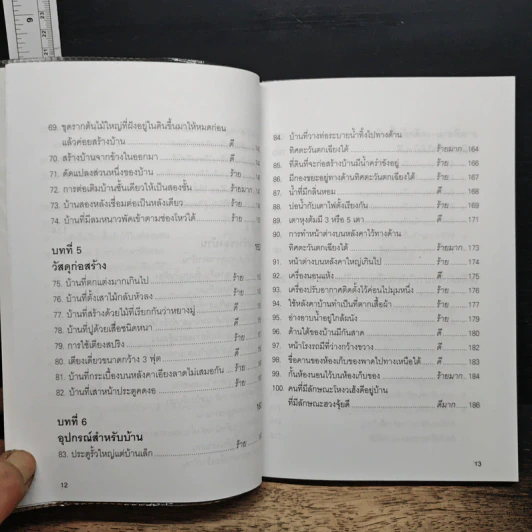 69. ขุดรากต้นไม้ใหญ่ที่ฝังอยู่ในดินขึ้นมาให้หมดก่อน
แล้วค่อยสร้างบ้าน ดี
70. สร้างบ้านจากข้างในออกมา ดี
71. ดัดแปลงส่วนหนึ่งของบ้าน ร้าย
72. การต่อเติมบ้านชั้นเดียวให้เป็นสองชั้น ร้าย
73. บ้านสองหลังเชื่อมต่อเป็นหลังเดียว ร้าย
74. บ้านที่มีลมหนาวพัดเข้าตามช่องโหว่ได้ ร้าย
บทที่ 5
วัสดุก่อสร้าง
75. บ้านที่ตกแต่งมากเกินไป ร้าย
76. บ้านที่ตั้งเสาไม้กลับหัวลง ร้าย
77. บ้านที่สร้างด้วยไม้ที่เรียกกันว่าหยางมู่ ดี
78. บ้านที่ปูด้วยเสื่อชนิดหนา ดี
79. การใช้เตียงสปริง ร้าย
80. เตียงเดี่ยวขนาดกว้าง 3 ฟุต ดี
81. บ้านที่กระเบื้องบนหลังคาเอียงลาดไม่เสมอกัน ร้าย
82. บ้านที่เสาหน้าประตูคดงอ ร้าย
บทที่ 6
อุปกรณ์สำหรับบ้าน
83. ประตูรั้วใหญ่แต่บ้านเล็ก ร้าย
12
84. บ้านที่วางท่อระบายน้ำทิ้งไปทางด้าน
ทิศตะวันตกเฉียงใต้ ร้ายมาก 164
85. ที่ดินที่จะก่อสร้างบ้านมีน้ำคร่ำขังอยู่ ร้าย 165
86. มีกองขยะอยู่ทางด้านทิศตะวันตกเฉียงใต้ ร้าย 166
87. น้ำที่มีกลิ่นหอม ดี 168
88. บ่อน้ำกับเตาไฟตั้งเรียงกัน ร้าย 169
89. เตาหุงต้มมี 3 หรือ 5 เตา ดี 171
90. การทำหน้าต่างบนหลังคาไว้ทางด้าน
ทิศตะวันตกเฉียงใต้ ร้ายมาก 173
91. หน้าต่างบนหลังคาใหญ่เกินไป ร้าย 174
92. เครื่องนอนแห้ง ดี 175
93. เครื่องปรับอากาศติดตั้งไว้ค่อนไปมุมหนึ่ง ร้าย 176
94. ใช้หลังคาบ้านทำเป็นที่ตากเสื้อผ้า ร้าย 177
95. อ่างอาบน้ำอยู่ใกล้ผนัง ร้าย 178
96. ด้านใต้ของบ้านมีกันสาด ดี 180
97. หน้าโรงรถมีที่ว่างกว้างขวาง ดี 182
98. ขื่อคานของห้องเก็บของพาดไปทางเหนือใต้ ดี 183
99. กั้นห้องนอนไว้บนห้องเก็บของ ร้ายมาก 184
100. คนที่มีลักษณะโหงวเฮ้งดีอยู่บ้าน
ที่มีลักษณะฮวงจุ้ยดี ดีมาก 186
13